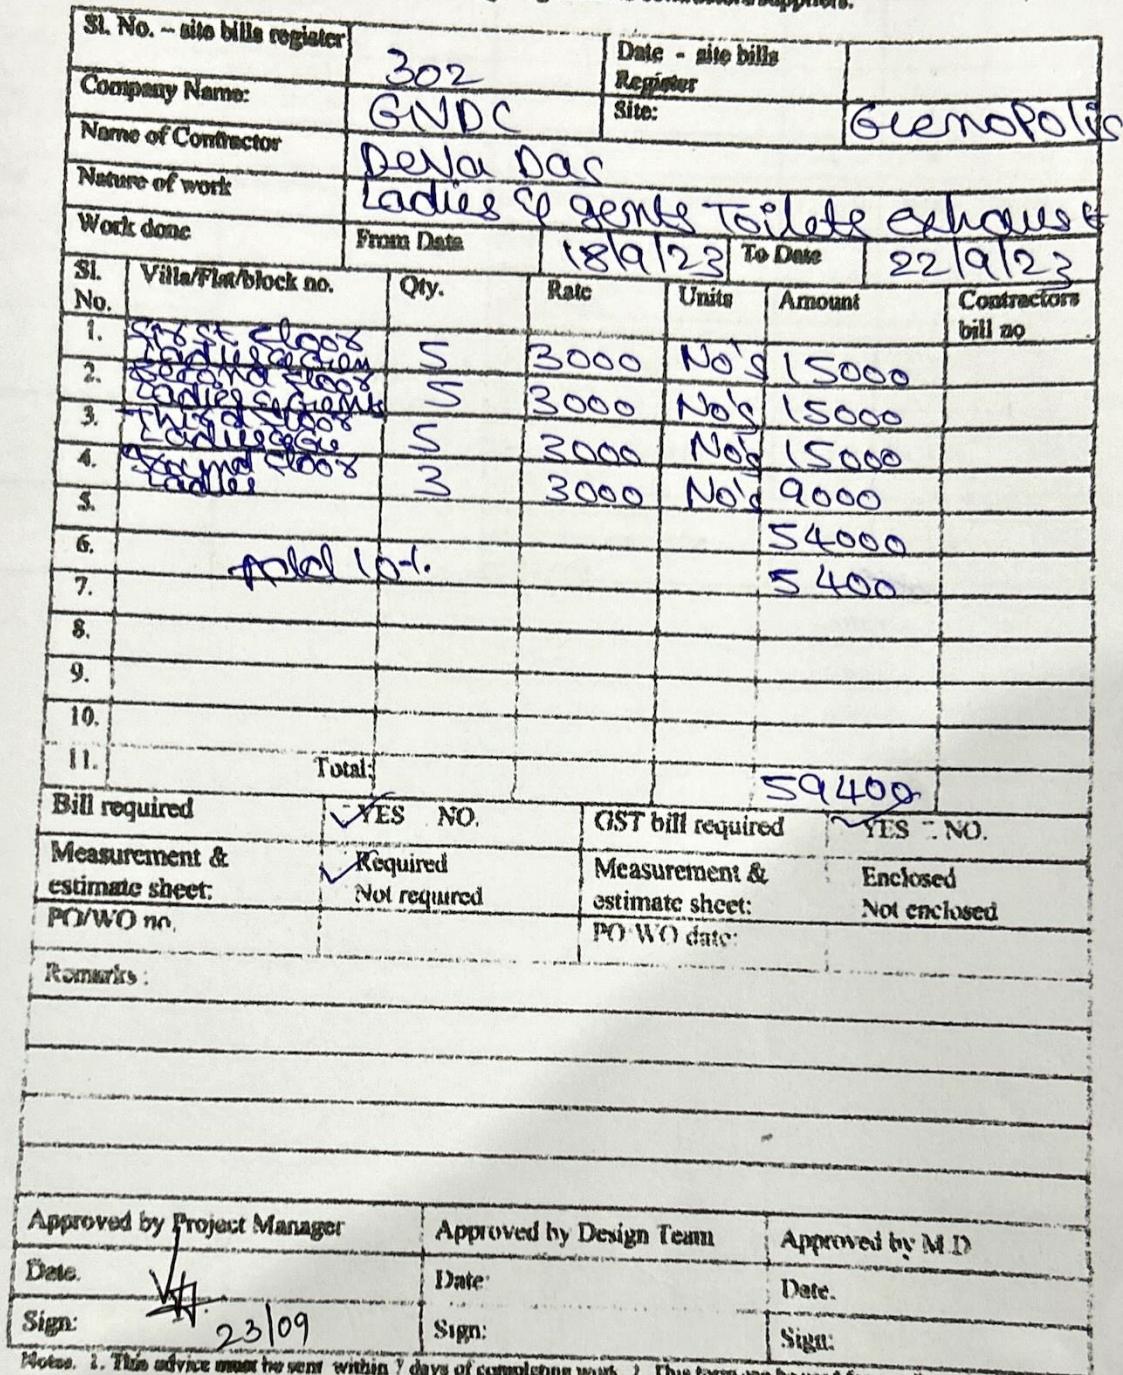 Sl. No. – site bills register 302 Date - site bills Register
Company Name: GNDC Site: GlenoPolis
Name of Contractor Deva Das
Nature of work Ladies & gents Toilets exhaust
Work done From Date 18/9/23 To Date 22/9/23
Sl. No. Villa/Flat/block no. Qty. Rate Units Amount Contractors bill no
1. first floor Ladies & Gen 5 3000 No's 15000
2. Second floor Ladies & Gents 5 3000 No's 15000
3. Third floor Ladies & Ge 5 3000 No's 15000
4. Ground floor Ladies 3 3000 No's 9000
5. 54000
6. Add 10% 5400
7.
8.
9.
10.
11. Total: 59400
Bill required YES NO. GST bill required YES - NO.
Measurement & estimate sheet: Required Not required Measurement & estimate sheet: Enclosed Not enclosed
PO/WO no. PO WO date:
Remarks :
Approved by Project Manager Approved by Design Team Approved by M.D
Date. Date: Date.
Sign: 23/09 Sign: Sign:
Notes. 1. This advice must be sent within 7 days of completing work.